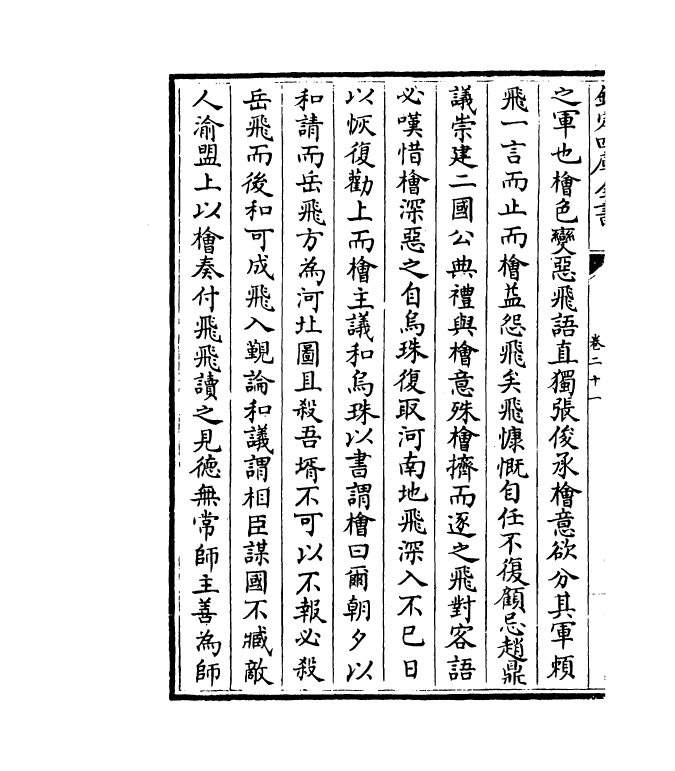 欽定四庫全書
卷二十一
之軍也檜色變惡飛語直獨張俊承檜意欲分其軍賴
飛一言而止而檜益怨飛矣飛慷慨自任不復顧忌趙鼎
議崇建二國公典禮與檜意殊檜擠而逐之飛對客語
必嘆惜檜深惡之自烏珠復取河南地飛深入不已日
以恢復勸上而檜主議和烏珠以書謂檜曰爾朝夕以
和請而岳飛方為河北圖且殺吾壻不可以不報必殺
岳飛而後和可成飛入覲論和議謂相臣謀國不臧敵
人渝盟上以檜奏付飛飛讀之見德無常師主善為師